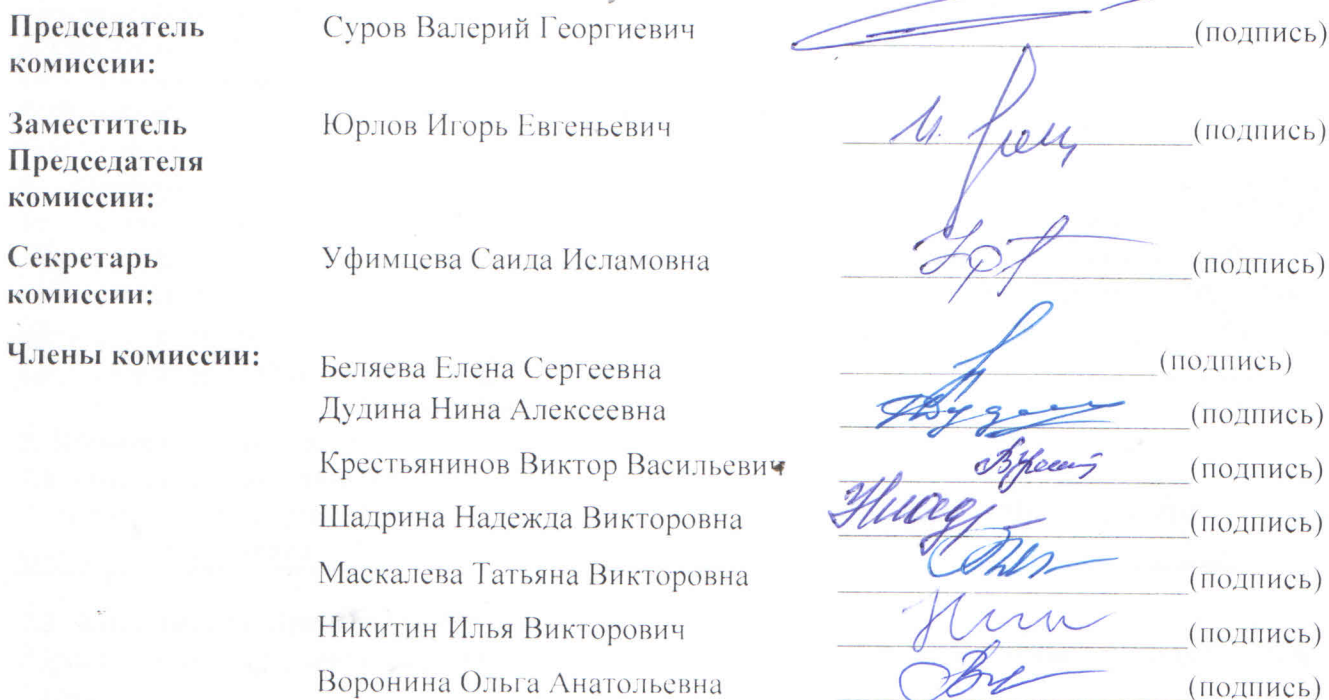 Председатель комиссии: Суров Валерий Георгиевич (подпись)
Заместитель Председателя комиссии: Юрлов Игорь Евгеньевич (подпись)
Секретарь комиссии: Уфимцева Саида Исламовна (подпись)
Члены комиссии: Беляева Елена Сергеевна (подпись)
Дудина Нина Алексеевна (подпись)
Крестьянинов Виктор Васильевич (подпись)
Шадрина Надежда Викторовна (подпись)
Маскалева Татьяна Викторовна (подпись)
Никитин Илья Викторович (подпись)
Воронина Ольга Анатольевна (подпись)